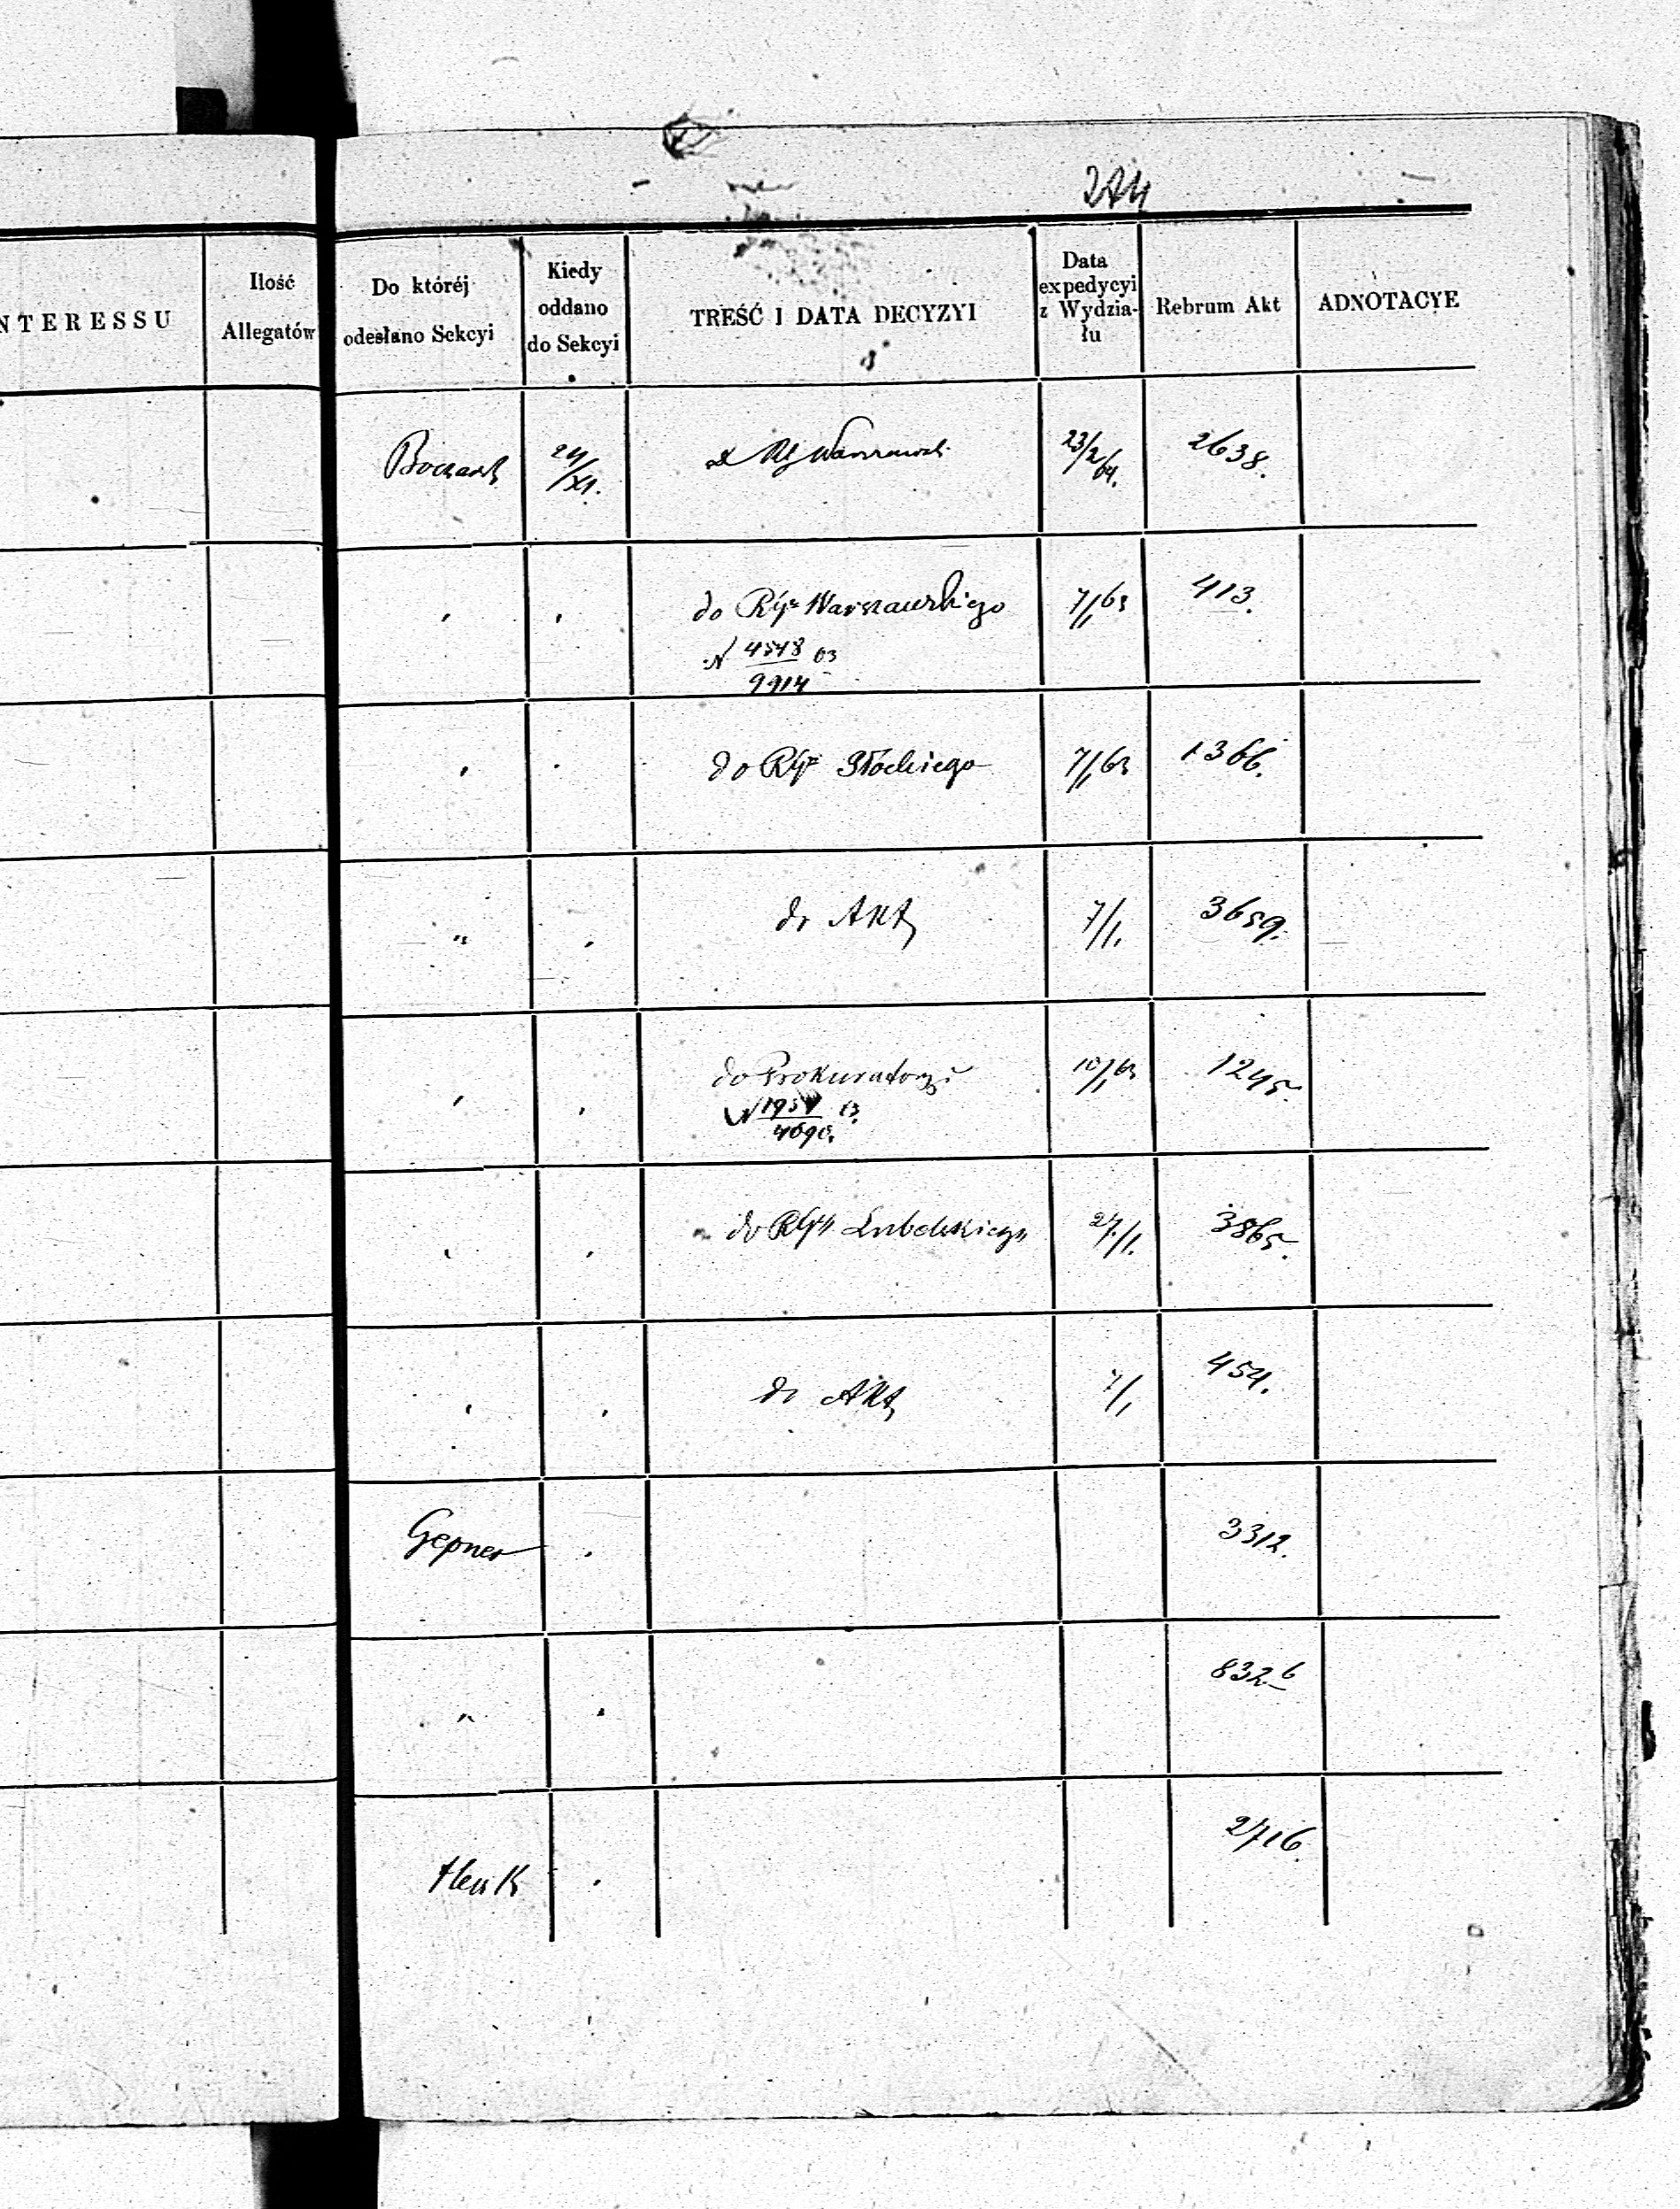 274
NTERESSU
Ilość
Allegatów
Do któréj
odesłano Sekcyi
Kiedy
oddano
do Sekcyi
TREŚĆ I DATA DECYZYI
Data
expedycyi
z Wydzia-
łu
Rebrum Akt
ADNOTACYE
24/XI. 23/2/64. 2638.
" " do Rząu Warszawskiego 7/1 63 413.
N 4548/9914 63
" " do Rząu Płockiego 7/1 63 1366.
" " do Akt 7/1. 3659.
" " do Prokuratoryi 10/1 63 1245.
" " do Rząu Lubelskiego 27/1. 3865.
" " do Akt 7/1 454.
Gepner " 3312.
" " 8326
" 2716.